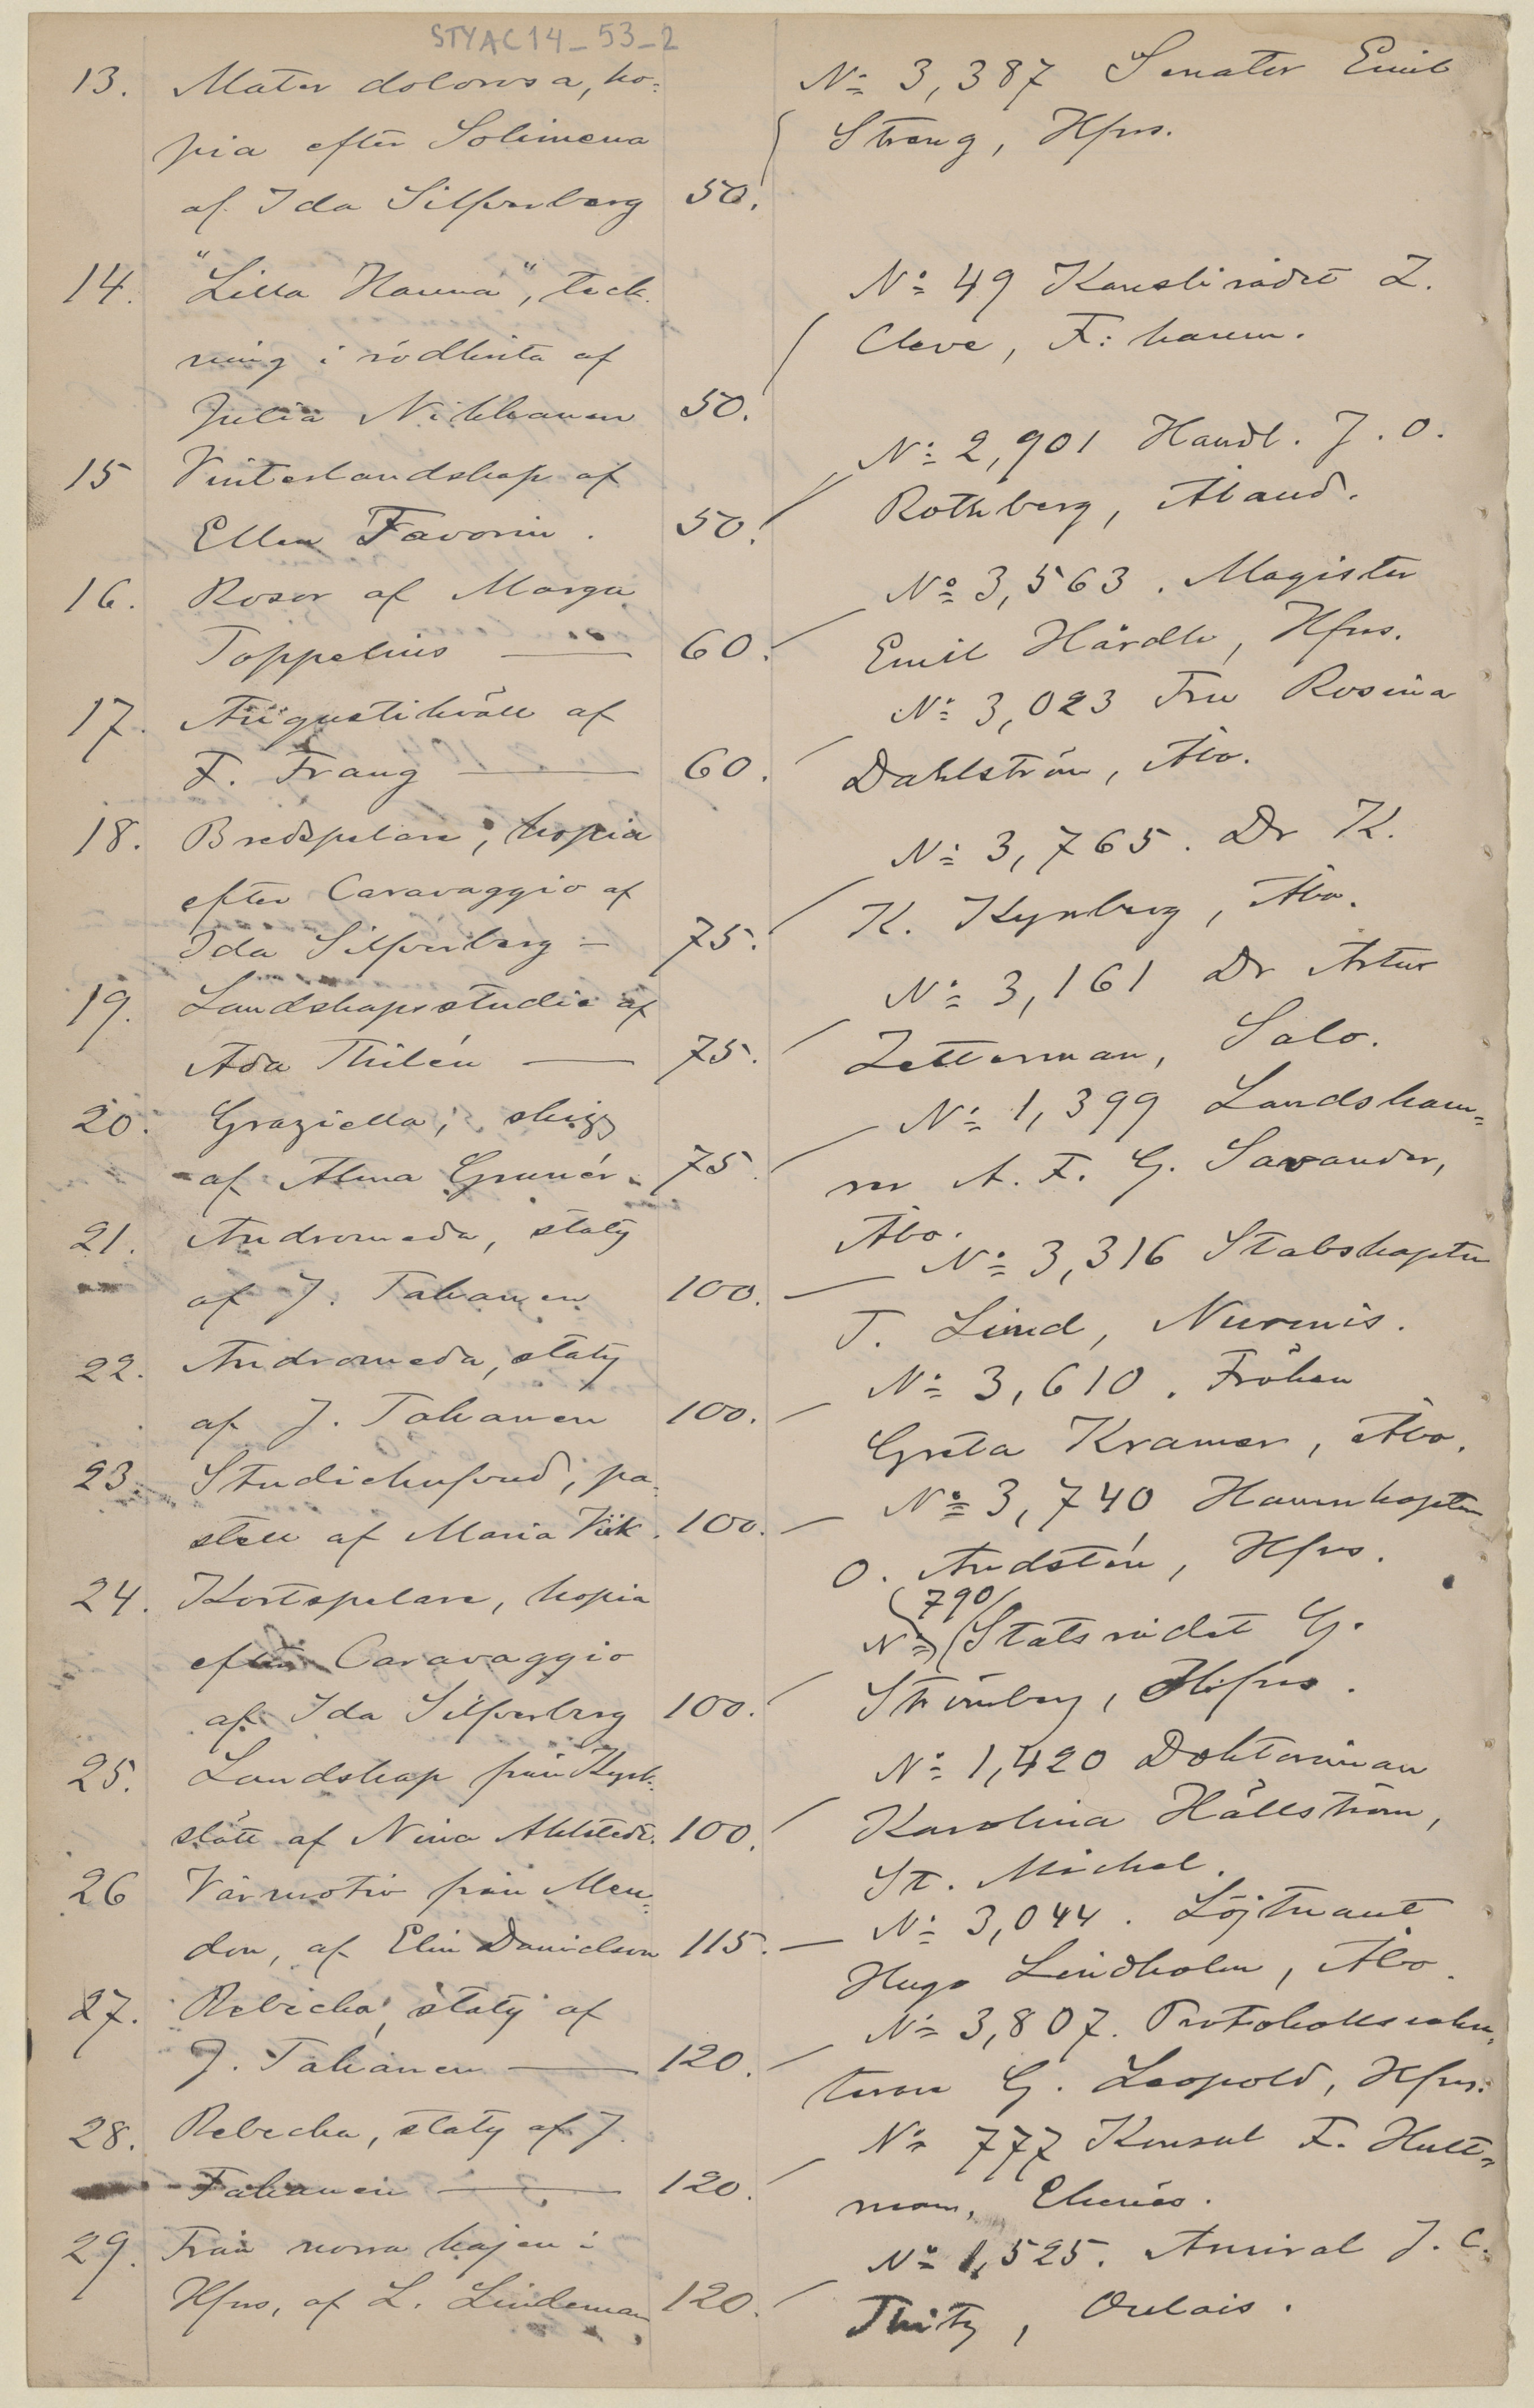 STYAC14-53-2
13. Mater dolorosa, ko-
pia efter Solimena
af Ida Silfverberg 50.
N:o 3,387 Senator Emil
Streng, Hfrs.
14. "Lilla Hanna", teck-
ning i rödkrita af
Julia Nikkanen 50.
N:o 49 Kanslirådet Z.
Cleve, F:hamn.
15 Vinterlandskap af
Ellen Favorin. 50.
N:o 2,901 Handl. J. O.
Rothberg, Åland.
16. Rosor af Marga
Toppelius — 60.
N:o 3,563. Magister
Emil Hårdh, Hfrs.
17. Augustikväll af
F. Frang — 60.
N:o 3,023 Fru Rosina
Dahlström, Åbo.
18. Brädspelare, kopia
efter Caravaggio af
Ida Silfverberg — 75.
N:o 3,765. Dr K.
K. Kynberg, Åbo.
19. Landskapsstudie af
Ada Thilén — 75.
N:o 3,161 Dr Artur
Zetterman, Salo.
20. Graziella, skizz
af Alma Grunér. 75.
N:o 1,399 Landskam-
rer A. F. G. Savander,
Åbo.
21. Andromeda, staty
af J. Takanen 100.
N:o 3,316 Stabskapten
T. Lind, Nurmis.
22. Andromeda, staty
af J. Takanen 100.
N:o 3,610. Fröken
Greta Kramer, Åbo.
23. Studiehufvud, pa-
stell af Maria Wiik. 100.
N:o 3,740 Hamnkapten
O. Andstén, Hfrs.
24. Kortspelare, kopia
efter Caravaggio
af Ida Silfverberg 100.
N:o 790 Statsrådet G.
Strömberg, Hfrs.
25. Landskap från Kyrk-
slätt af Nina Ahlstedt. 100.
N:o 1,420 Doktorinnan
Karolina Hällström,
St. Michel.
26 Vårmotiv från Meu-
don, af Elin Danielson 115.
N:o 3,044. Löjtnant
Hugo Lindholm, Åbo.
27. Rebecka, staty af
J. Takanen — 120.
N:o 3,807. Protokollssekre-
teren G. Leopold, Hfrs.
28. Rebecka, staty af J.
Takanen — 120.
N:o 777 Konsul F. Hult-
man, Ekenäs.
29. Från norra kajen i
Hfrs, af L. Lindeman 120.
N:o 1,525. Amiral J. C.
Oulais.